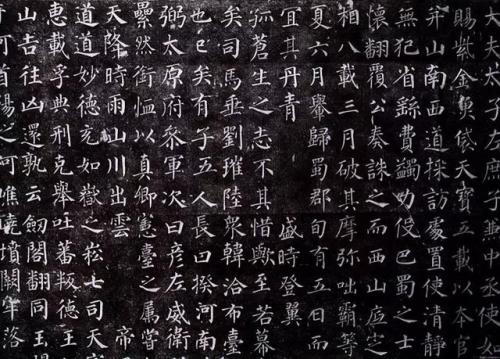 大夫太子左庶子兼中丞使如
賜紫金魚袋天寶五載以本官
并山南西道採訪處置使清靜
無犯省繇費蠲劝侵巴蜀之士
懷翻覆公奏誅之而西山底定
相八載三月破其摩弥咄霸等
夏六月舉歸蜀郡旬有五日而
宜其丹青 盛時登翼
孤蒼生之志不其惜歟至若幕
矣司馬垂劉璀陸衆韓洽布臺
也已矣有子五人長曰揆河南
弼太原府叅軍次曰彦左威衛
纍然銜恤以真卿憲臺之属嘗
天降時雨山川出雲 帝
道道妙德充如嶽之崧七司天
惠載孚典刑克舉吐蕃叛德王
山吉往凶還孰云劒閣翻同玉
河首陽之阿嶕嶢墳闕牢落